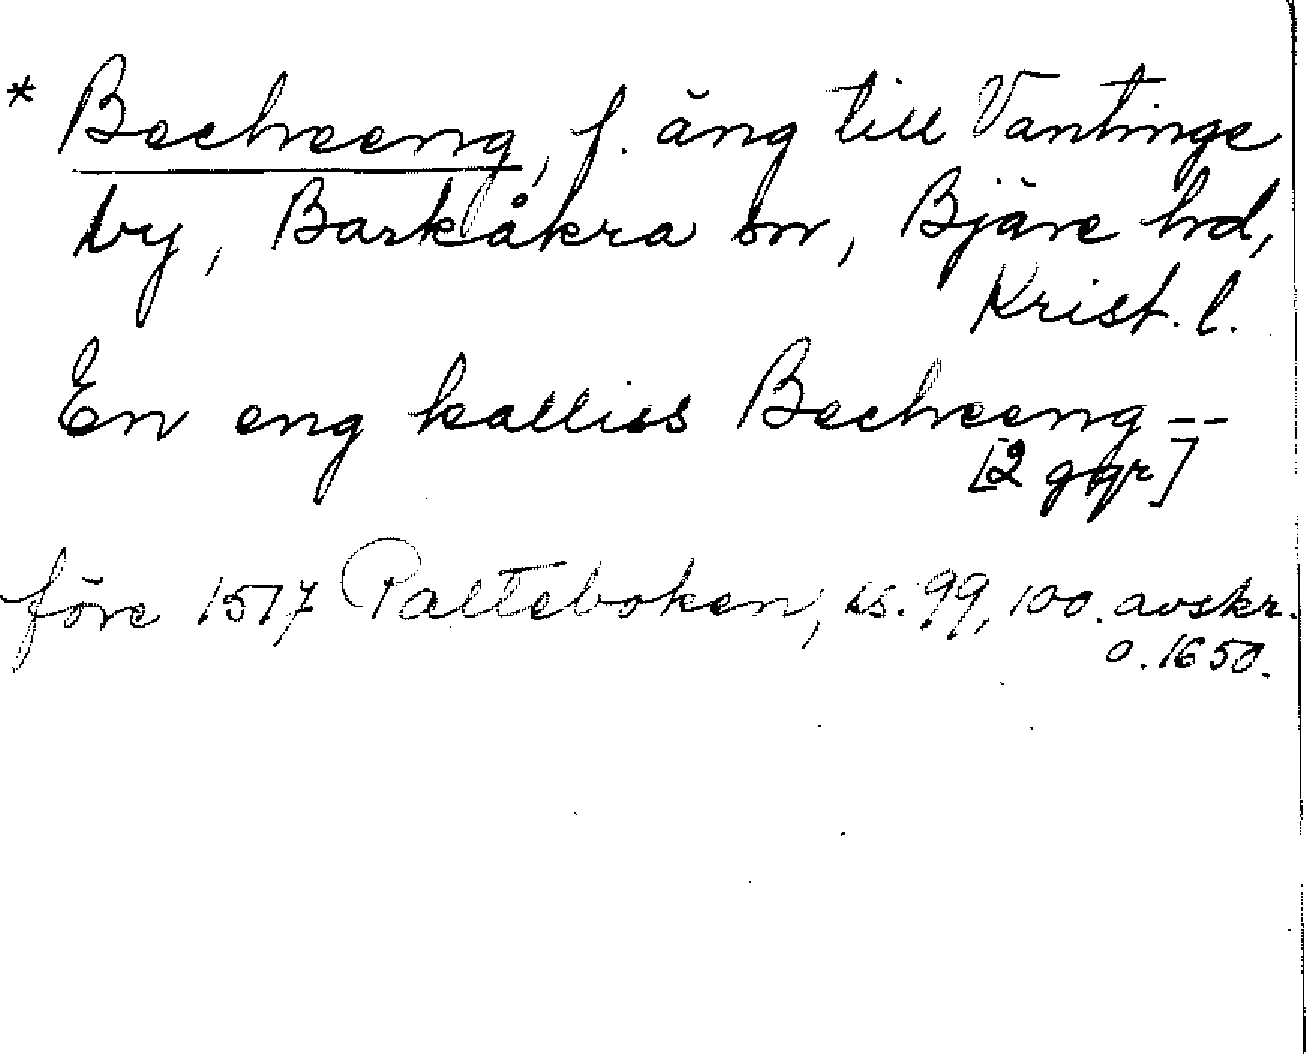 * Becheeng, f. äng till Vantinge
by, Barkåkra sn, Bjäre hd,
Krist. l.
En eng kalliss Becheeng --
[2 ggr]
före 1517 Palteboken, ss. 99, 100. avskr.
o. 1650.